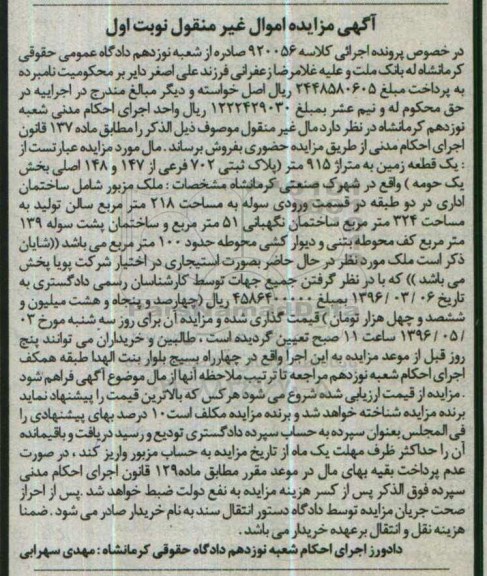 آگهی مزایده اموال غیر منقول نوبت اول
در خصوص پرونده اجرائی کلاسه ۹۲۰۰۵۶ صادره از شعبه نوزدهم دادگاه عمومی حقوقی
کرمانشاه له بانک ملت و علیه غلامرضا زعفرانی فرزند علی اصغر دایر بر محکومیت نامبرده
به پرداخت مبلغ ۲۴۴۸۵۸۰۶۰۵ ریال اصل خواسته و دیگر مبالغ مندرج در اجراییه در
حق محکوم له و نیم عشر بمبلغ ۱۲۲۲۴۲۹۰۳۰ ریال واحد اجرای احکام مدنی شعبه
نوزدهم کرمانشاه در نظر دارد مال غیر منقول موصوف ذیل الذکر را مطابق ماده ۱۳۷ قانون
اجرای احکام مدنی از طریق مزایده حضوری بفروش برساند . مال مورد مزایده عبارتست از
: یک قطعه زمین به متراژ ۹۱۵ متر (پلاک ثبتی ۷۰۲ فرعی از ۱۴۷ و ۱۴۸ اصلی بخش
یک حومه ) واقع در شهرک صنعتی کرمانشاه مشخصات : ملک مزبور شامل ساختمان
اداری در دو طبقه در قسمت ورودی سوله به مساحت ۲۱۸ متر مربع سالن تولید به
مساحت ۳۲۴ متر مربع ساختمان نگهبانی ۵۱ متر مربع و ساختمان پشت سوله ۱۳۹
متر مربع کف محوطه بتنی و دیوار کشی محوطه حدود ۱۰۰ متر مربع می باشد ((شایان
ذکر است ملک مورد نظر در حال حاضر بصورت استیجاری در اختیار شرکت پویا پخش
می باشد )) که با در نظر گرفتن جمیع جهات توسط کارشناسان رسمی دادگستری به
تاریخ ۰۶ /۰۳ /۱۳۹۶ بمبلغ ۴۵۸۶۴۰۰۰۰۰ ریال (چهارصد و پنجاه و هشت میلیون و
ششصد و چهل هزار تومان ) قیمت گذاری شده و مزایده آن برای روز سه شنبه مورخ ۰۳
/۰۵ /۱۳۹۶ ساعت ۱۱ صبح تعیین گردیده است . طالبین و خریداران می توانند پنج
روز قبل از موعد مزایده به این اجرا واقع در چهارراه بسیج بلوار بنت الهدا طبقه همکف
اجرای احکام شعبه نوزدهم مراجعه تا ترتیب ملاحظه آنها از مال موضوع آگهی فراهم شود
. مزایده از قیمت ارزیابی شده شروع می شود هر کس که بالاترین قیمت را پیشنهاد نماید
برنده مزایده شناخته خواهد شد و برنده مزایده مکلف است ۱۰ درصد بهای پیشنهادی را
فی المجلس بعنوان سپرده به حساب سپرده دادگستری تودیع و رسید دریافت و باقیمانده
آن را حداکثر ظرف مهلت یک ماه از تاریخ مزایده به حساب مزبور واریز کند ، در صورت
عدم پرداخت بقیه بهای مال در موعد مقرر مطابق ماده ۱۲۹ قانون اجرای احکام مدنی
سپرده فوق الذکر پس از کسر هزینه مزایده به نفع دولت ضبط خواهد شد .پس از احراز
صحت جریان مزایده توسط دادگاه دستور انتقال سند به نام خریدار صادر می شود . ضمنا
هزینه نقل و انتقال بر عهده خریدار می باشد .
دادورز اجرای احکام شعبه نوزدهم دادگاه حقوقی کرمانشاه : مهدی سهرابی